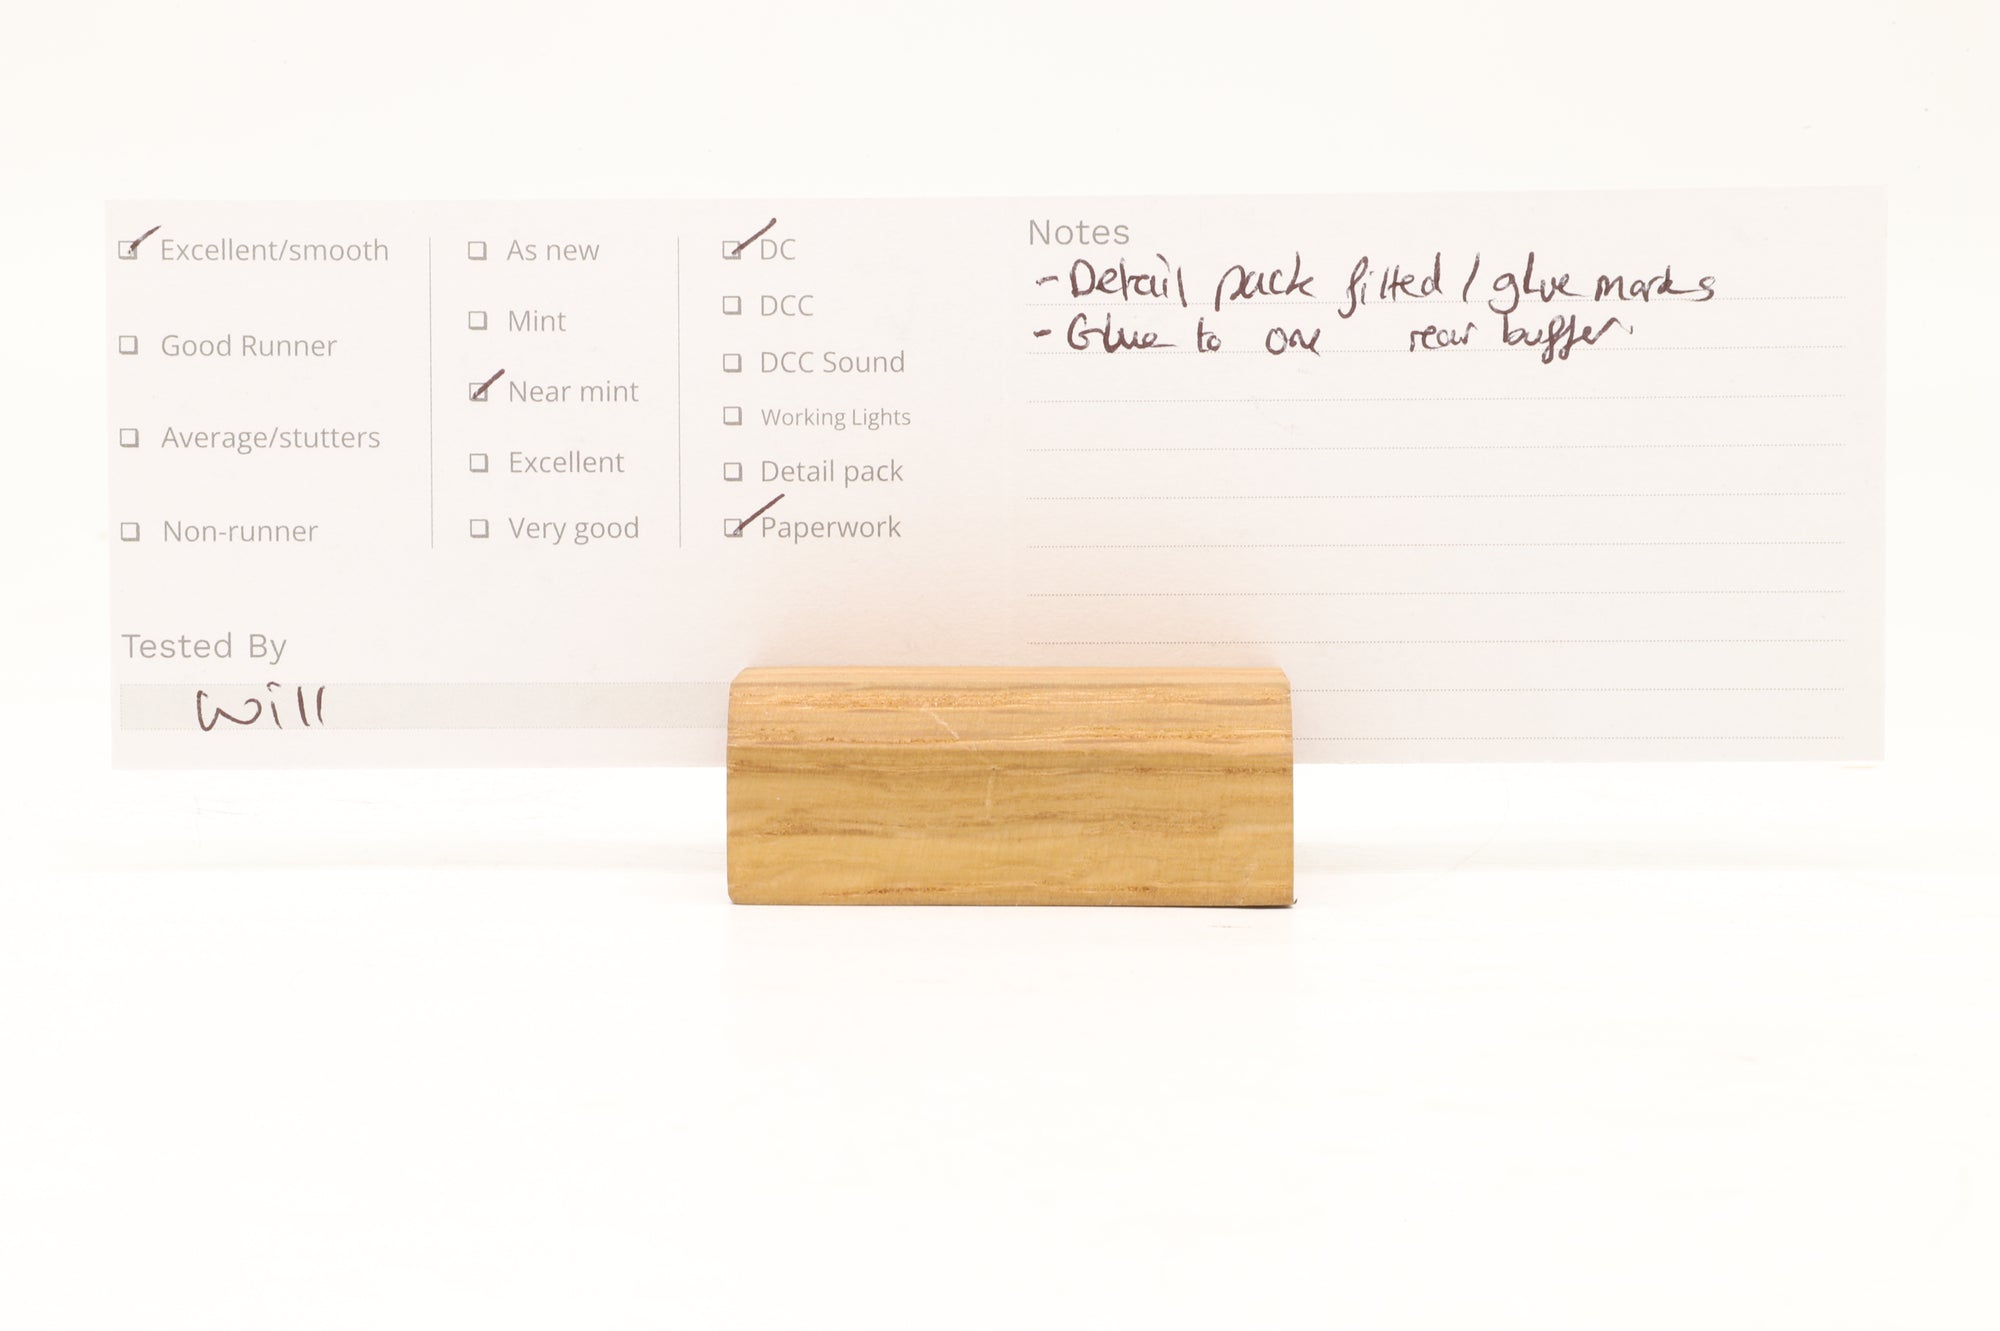 Excellent/smooth
Good Runner
Average/stutters
Non-runner
As new
Mint
Near mint
Excellent
Very good
DC
DCC
DCC Sound
Working Lights
Detail pack
Paperwork
Notes
- Detail pack fitted / glue marks
- Glue to one rear buffer.
Tested By
Will